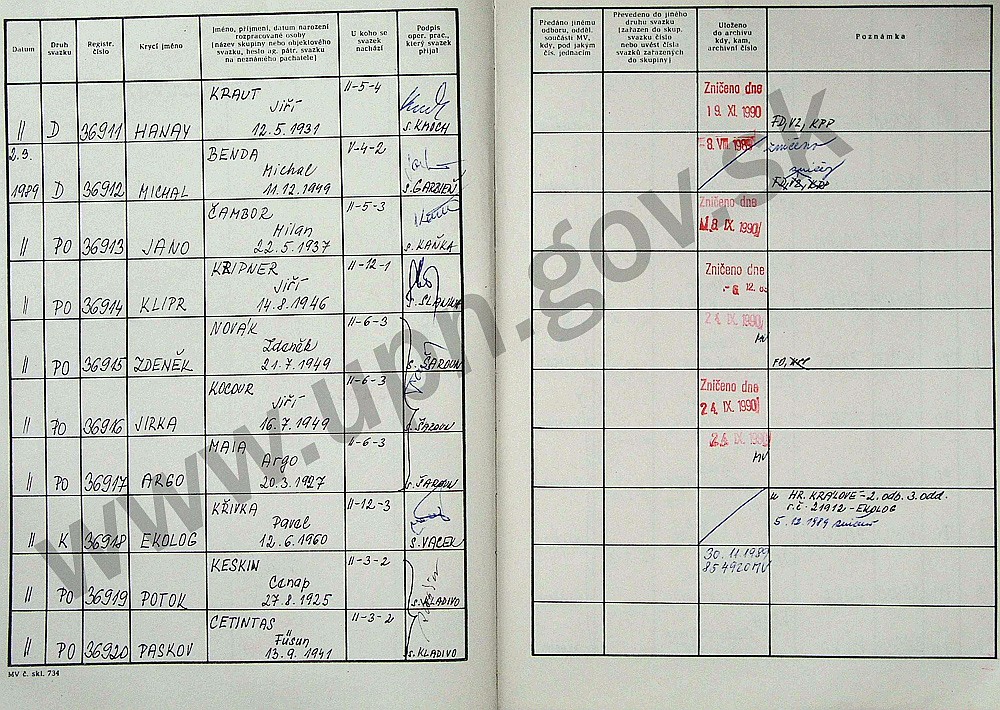 Datum
Druh svazku
Registr. číslo
Krycí jméno
Jméno, příjmení, datum narození
rozpracované osoby
(název skupiny nebo objektového
svazku, heslo ag. pátr. svazku
na neznámého pachatele)
U koho se
svazek
nachází
Podpis
oper. prac.,
který svazek
přijal
Předáno jinému
odboru, odděl.
součásti MV,
kdy, pod jakým
čís. jednacím
Převedeno do jiného
druhu svazku
(zařazen do skup.
svazku číslo
nebo uvést čísla
svazků zařazených
do skupiny)
Uloženo
do archivu
kdy, kam,
archivní číslo
Poznámka
KRAUT II-5-4 Zničeno dne
Jiří 19. XI. 1990
II D 36911 HANAY 12.5.1931 s. KMOCH FO, VZ, KPP
2.9. BENDA V-4-2 - 8. VIII. 1985 zničeno
Michal
1989 D 36912 MICHAL 11.12.1949
ČAMBOR II-5-3 Zničeno dne
Milan 18. IX. 1990
II PO 36913 JANO 22.5.1937 s. KAŇKA
KRIPNER II-12-1 Zničeno dne
Jiří
II PO 36914 KLIPR 14.8.1946
NOVÁK II-6-3 24. IX. 1990
Zdeněk MV
II PO 36915 ZDENĚK 21.7.1949 s. ŠAROUN
KOCOUR II-6-3 Zničeno dne
Jiří 24. IX. 1990
II PO 36916 JIRKA 16.7.1949 s. ŠAROUN
MAIA II-6-3 24. IX. 1990
Argo MV
II PO 36917 ARGO 20.3.1927 s. ŠAROUN
KŘIVKA II-12-3 HR. KRÁLOVÉ - 2. odb. 3. odd.
Pavel r.č. 21912 - EKOLOG
II K 36918 EKOLOG 12.6.1960 s. VACEK 5.12.1989
KESKIN II-3-2 30.11.1989
Canap 854920 MV
II PO 36919 POTOK 27.8.1925 s. KLADIVO
CETINTAS II-3-2
Füsun
II PO 36920 PASKOV 13.9.1941 s. KLADIVO
MV č. skl. 734
www.upn.gov.sk